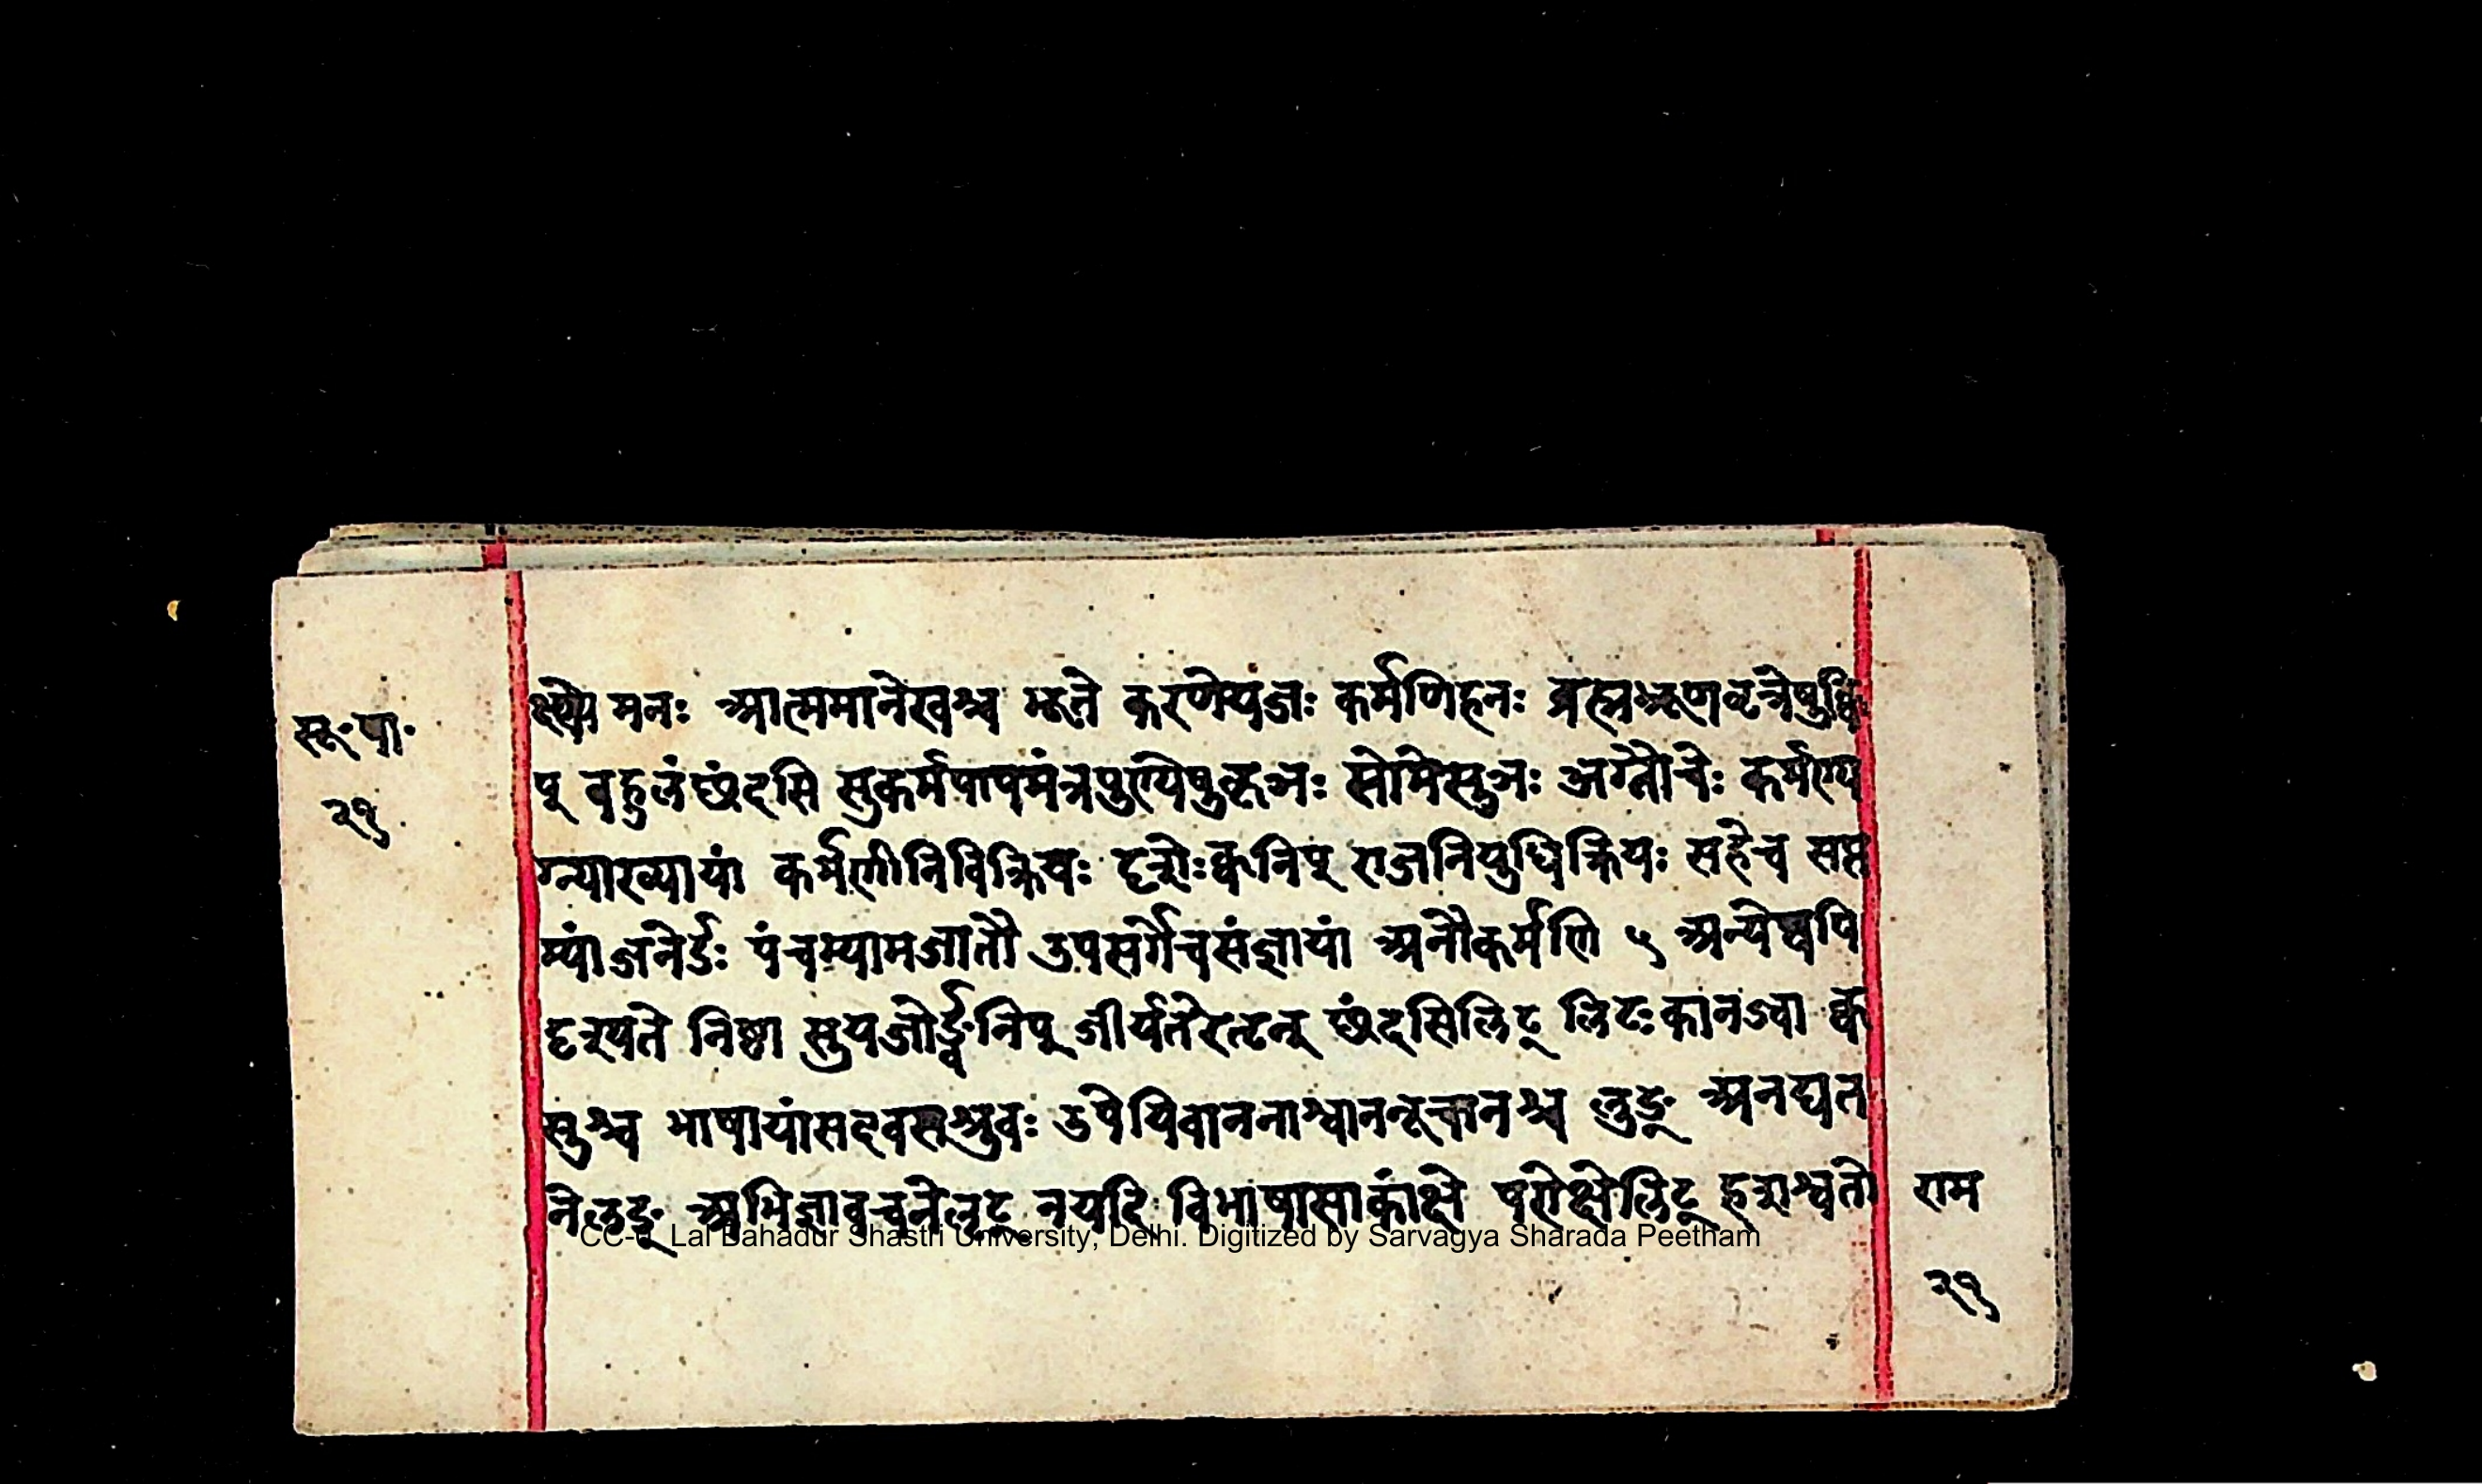 सू॰ पा॰
२१
क्ष्ण्ये मनः आत्ममानेखश्च भूते करणेयजः कर्मणिहनः ब्रह्मभ्रूणवृत्रेषुक्वि
प् बहुलंछंदसि सुकर्मपापमंत्रपुण्येषुकृञः सोमेसुञः अग्नौचेः कर्मण्य
ग्न्याख्यायां कर्मणीनिविक्रियः दृशेःक्वनिप् राजनियुधिक्रियः सहेच सप्त
म्यांजनेर्डः पंचम्यामजातौ उपसर्गेचसंज्ञायां अनौकर्मणि ५ अन्येष्वपि
दृश्यते निष्ठा सुयजोर्ङ्वनिप् जीर्यतेरतृन् छंदसिलिट् लिटःकानज्वा क्व
सुश्च भाषायांसदवसश्रुवः उपेयिवाननाश्वाननूचानश्च लुङ् अनद्यत
नेलङ् अभिज्ञावचनेलृट् नयदि विभाषासाकांक्षे परोक्षेलिट् हशश्वतो
राम
२१
CC-0. Lal Bahadur Shastri University, Delhi. Digitized by Sarvagya Sharada Peetham